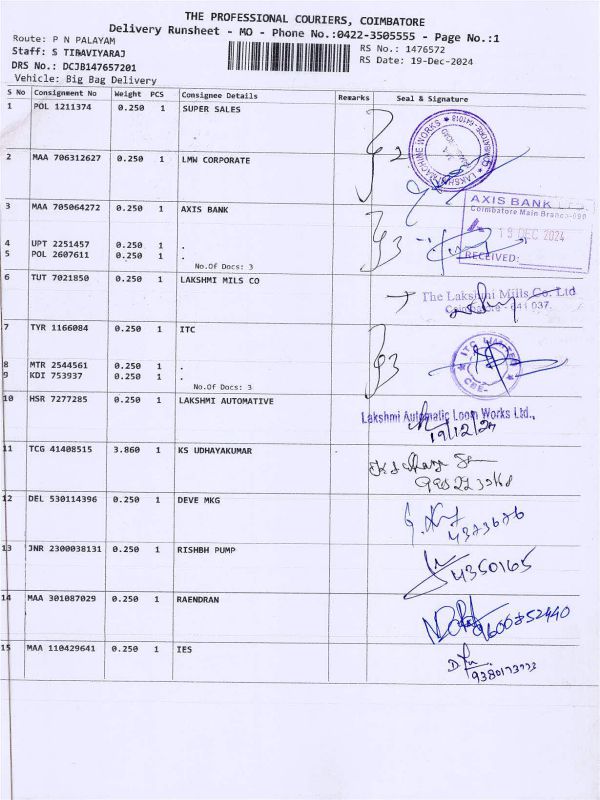 THE PROFESSIONAL COURIERS, COIMBATORE
Delivery Runsheet - MO - Phone No.:0422-3505555 - Page No.:1
Route: P N PALAYAM
RS No.: 1476572
Staff: S TIBAVIYARAJ
RS Date: 19-Dec-2024
DRS No.: DCJB147657201
Vehicle: Big Bag Delivery
S No Consignment No Weight PCS Consignee Details Remarks Seal & Signature
1 POL 1211374 0.250 1 SUPER SALES
2
2 MAA 706312627 0.250 1 LMW CORPORATE
3 MAA 705064272 0.250 1 AXIS BANK
AXIS BANK
Coimbatore Main Branch-090
19 DEC 2024
RECEIVED:
3
4 UPT 2251457 0.250 1 .
5 POL 2607611 0.250 1 .
No.Of Docs: 3
6 TUT 7021850 0.250 1 LAKSHMI MILS CO
The Lakshmi Mills Co. Ltd
Coimbatore - 641 037.
7 TYR 1166084 0.250 1 ITC
ITC LIMITED
CBE-
3
8 MTR 2544561 0.250 1 .
9 KDI 753937 0.250 1 .
No.Of Docs: 3
10 HSR 7277285 0.250 1 LAKSHMI AUTOMATIVE
Lakshmi Automatic Loom Works Ltd.,
19/12/24
11 TCG 41408515 3.860 1 KS UDHAYAKUMAR
12 DEL 530114396 0.250 1 DEVE MKG
4373676
13 JNR 2300038131 0.250 1 RISHBH PUMP
4350165
14 MAA 301087029 0.250 1 RAENDRAN
9600852440
15 MAA 110429641 0.250 1 IES
9380173773